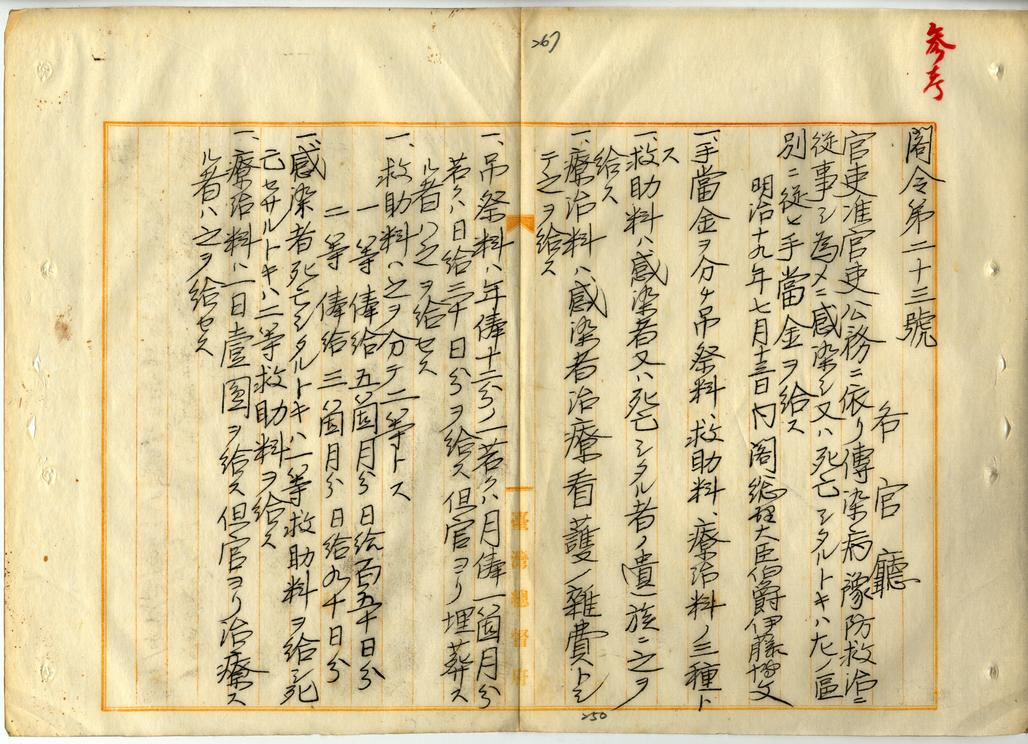 參考
267
閣令第二十三號
各官廳
官吏准官吏公務ニ依リ傳染病豫防救治ニ
從事シ為メニ感染シ又ハ死亡シタルトキハ左ノ區
別ニ從ヒ手當金ヲ給ス
明治十九年七月十三日内閣總理大臣伯爵伊藤博文
一、手當金ヲ分ケ吊祭料、救助料、療治料ノ三種ト
ス
一、救助料ハ感染者又ハ死亡シタル者ノ遺族ニ之ヲ
給ス
一、療治料ハ感染者治療看護ノ雜費トシ
テ之ヲ給ス
一、吊祭料ハ年俸十二分ノ一若クハ月俸一箇月分
若クハ日給三十日分ヲ給ス但官ヨリ埋葬ス
ル者ハ之ヲ給セス
一、救助料ハ之ヲ分テ二等トス
一等 俸給五箇月分 日給百五十日分
二等 俸給三箇月分 日給九十日分
一、感染者死亡シタルトキハ一等救助料ヲ給シ死
亡セサルトキハ二等救助料ヲ給ス
一、療治料ハ一日壹圓ヲ給ス但官ヨリ治療ス
ル者ハ之ヲ給セス
臺灣總督府
250